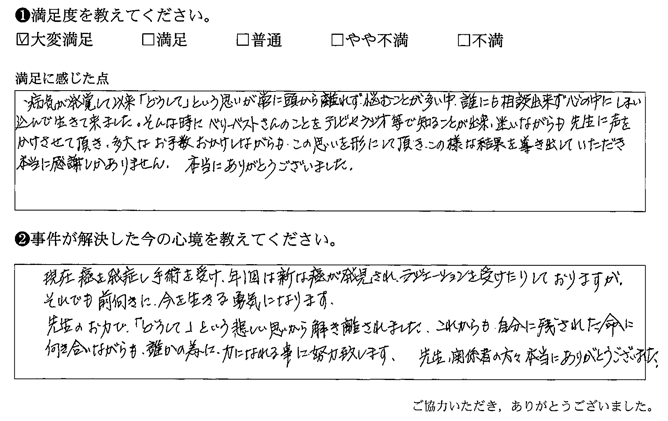 ❶満足度を教えてください。
☑大変満足 □満足 □普通 □やや不満 □不満
満足に感じた点
病気が発覚して以来「どうして」という思いが常に頭から離れず悩むことが多い中、誰にも相談出来ず心の中にしまい
込んで生きて来ました。そんな時にベリーベストさんのことをテレビやラジオ等で知ることが出来、迷いながらも先生に声を
かけさせて頂き、多大なお手数おかけしながらも、この思いを形にして頂き、この様な結果を導き出していただき
本当に感謝しかありません。 本当にありがとうございました。
❷事件が解決した今の心境を教えてください。
現在癌を発症し手術を受け、年1回は新な癌が発見され、ラジエーションを受けたりしておりますが、
それでも前向きに、今を生きる勇気になります。
先生のお力で、「どうして」という悲しい思いから解き離されました。これからも自分に残された命に
向き合いながらも、誰かの為に、力になれる事に努力致します。 先生、関係者の方々本当にありがとうございました。
ご協力いただき，ありがとうございました。